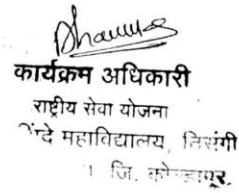 कार्यक्रम अधिकारी
राष्ट्रीय सेवा योजना
महाविद्यालय, तिसंगी
जि. कोल्हापूर.